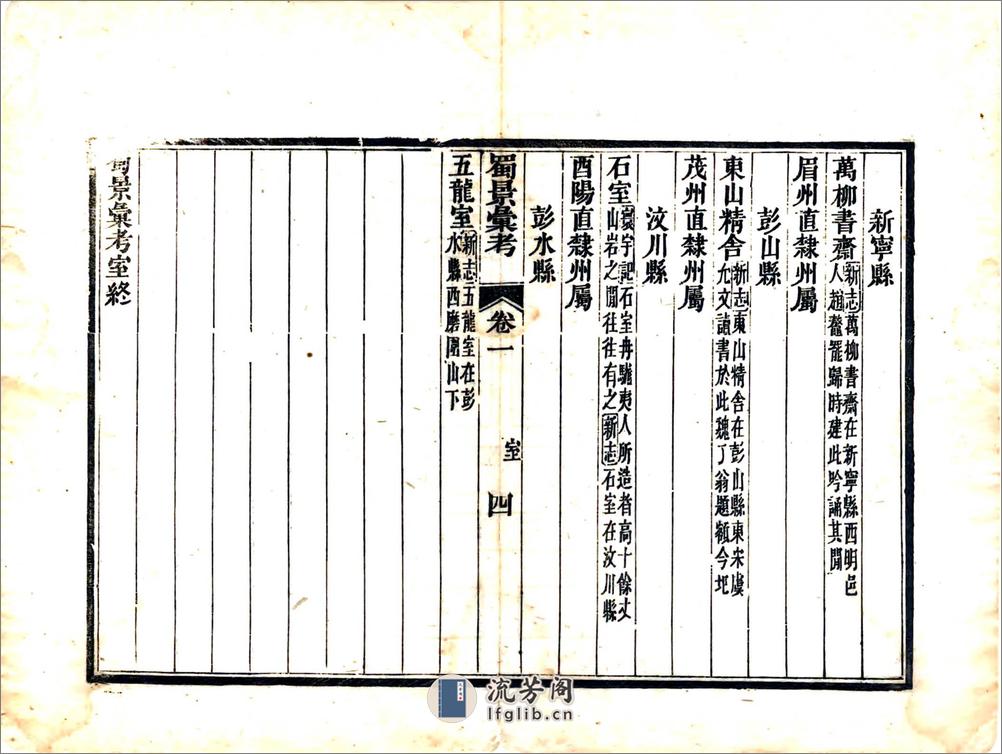 新寧縣
萬柳書齋新志萬柳書齋在新寧縣西明邑
人趙鰲罷歸時建此吟誦其間
眉州直隸州屬
彭山縣
東山精舍新志東山精舍在彭山縣東宋虞
允文讀書於此魏了翁題額今圯
茂州直隸州屬
汶川縣
石室寰宇記石室冉駹夷人所造者高十餘丈
山岩之間往往有之新志石室在汶川縣
酉陽直隸州屬
彭水縣
蜀景彙考 卷一 室 四
五龍室新志五龍室在彭
水縣西磨圍山下
蜀景彙考室終
流芳阁
lfglib.cn